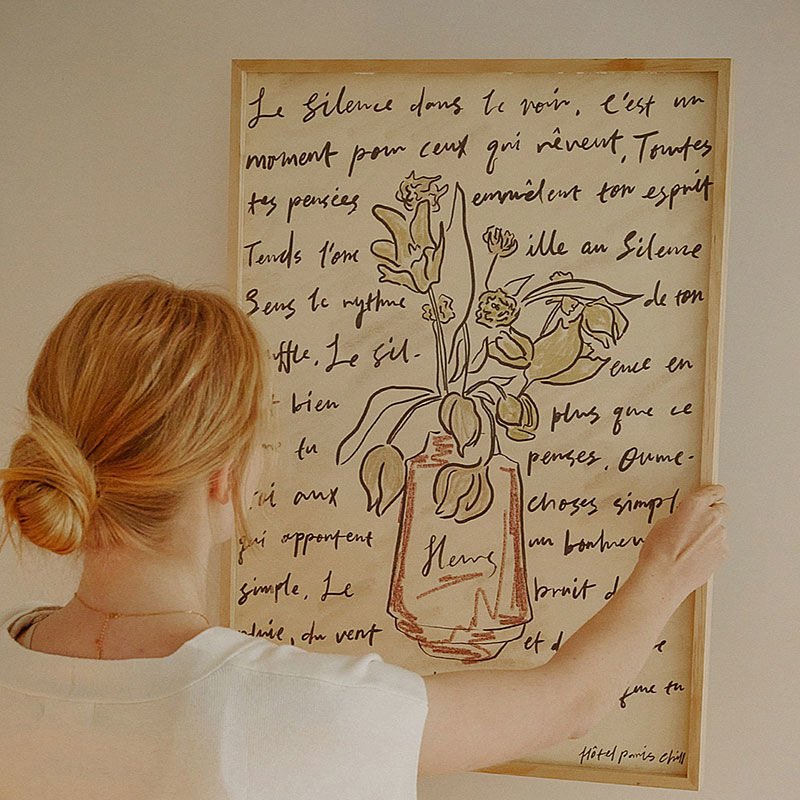 Le Silence dans le noir, C'est un
moment pour ceux qui rêvent, Toutes
tes pensées emmêlent ton esprit
Tends l'ore ille au Silence
Sens le rythme de ton
uffle. Le Sil- ence en
bien plus que ce
tu penses. Ouvre-
oi aux choses simpl
qui apportent un bonheur
simple. Le bruit d
pluie, du vent et d
que tu
fleurs
Hôtel paris chill